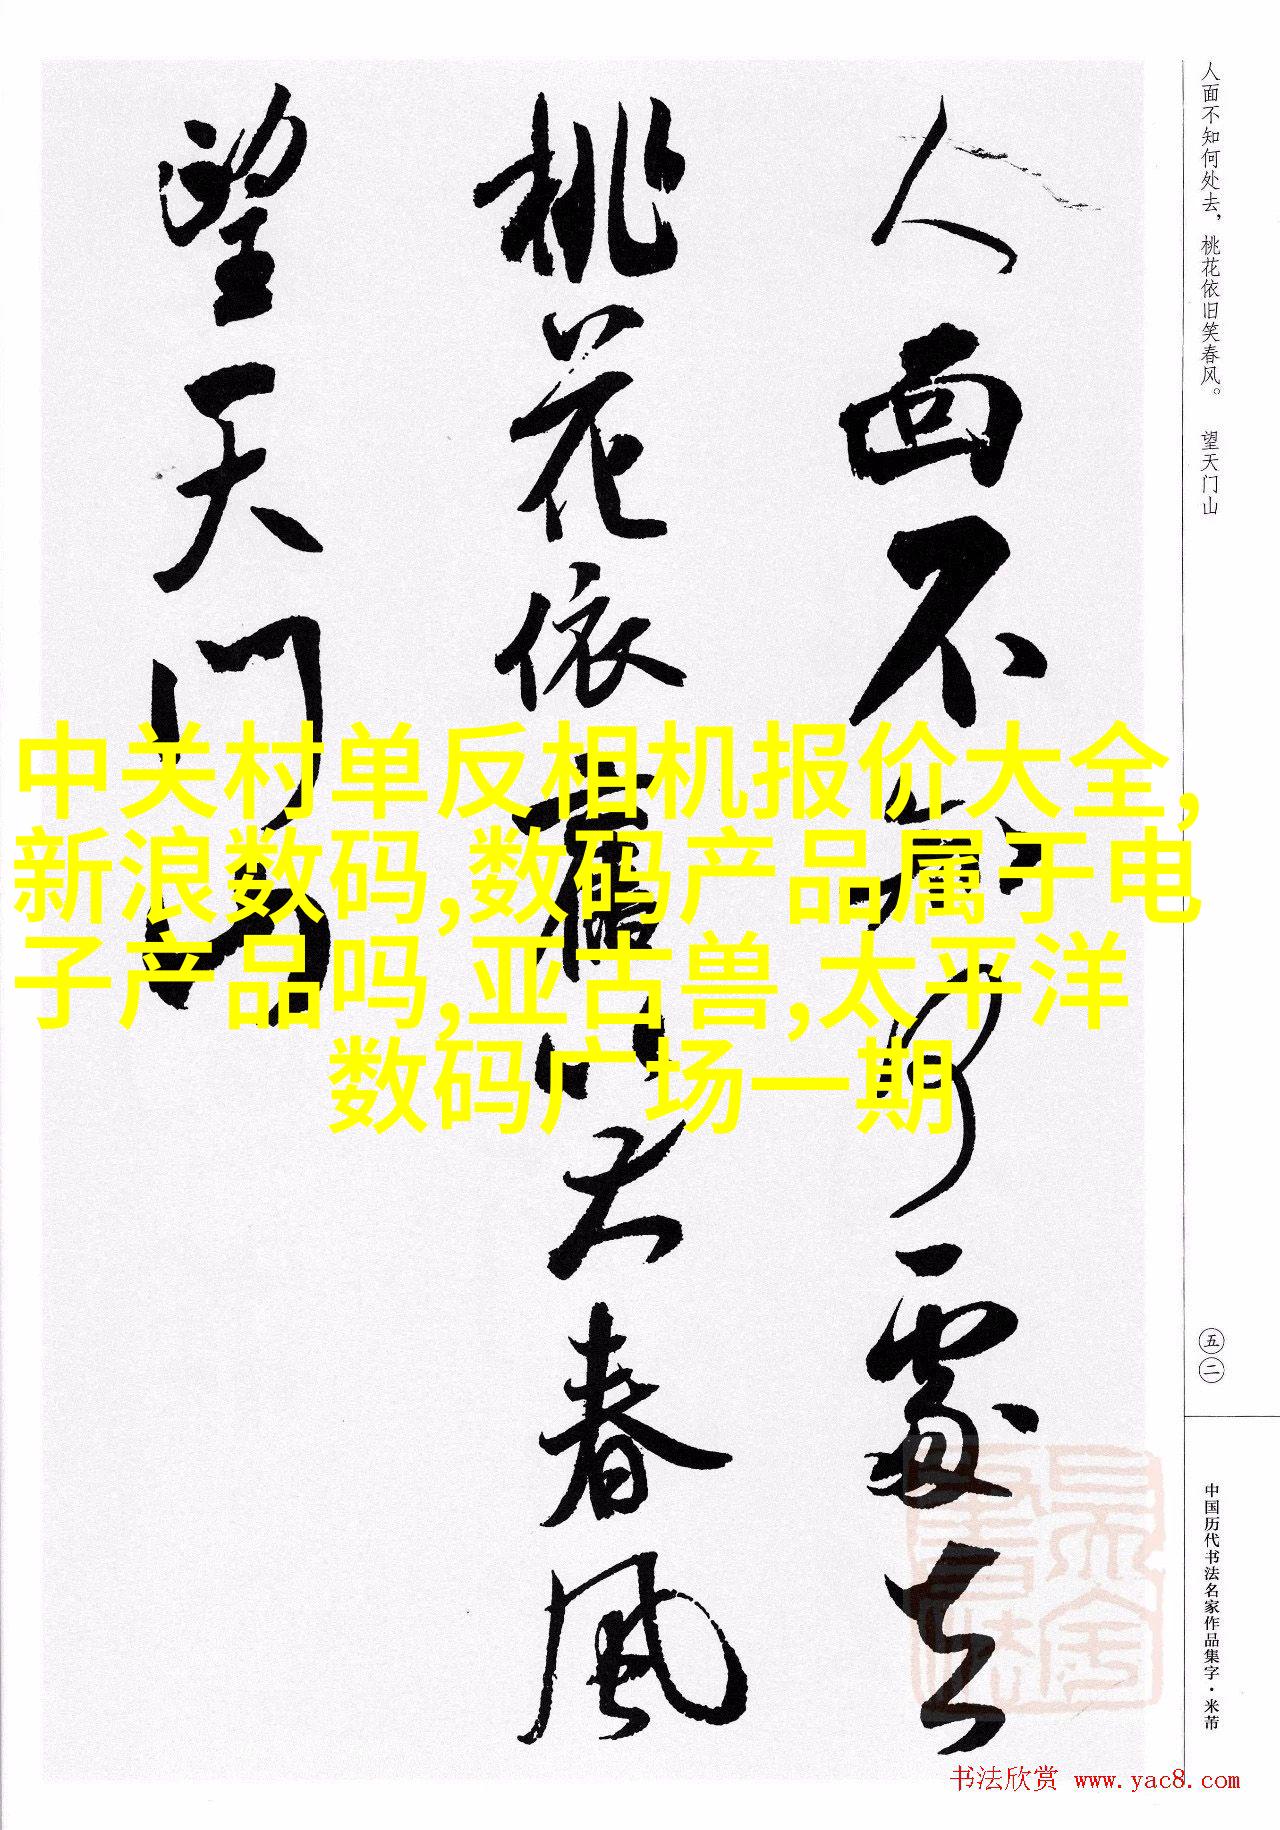 人面不知何处去，桃花依旧笑春风。 望天门山
人面不知何處去
桃花依舊笑春風
望天门山
中关村单反相机报价大全,
新浪数码,数码产品属于电
子产品吗,亚古兽,太平洋
数码广场一期
五二
中国历代书法名家作品集字·米芾
书法欣赏 www.yac8.com